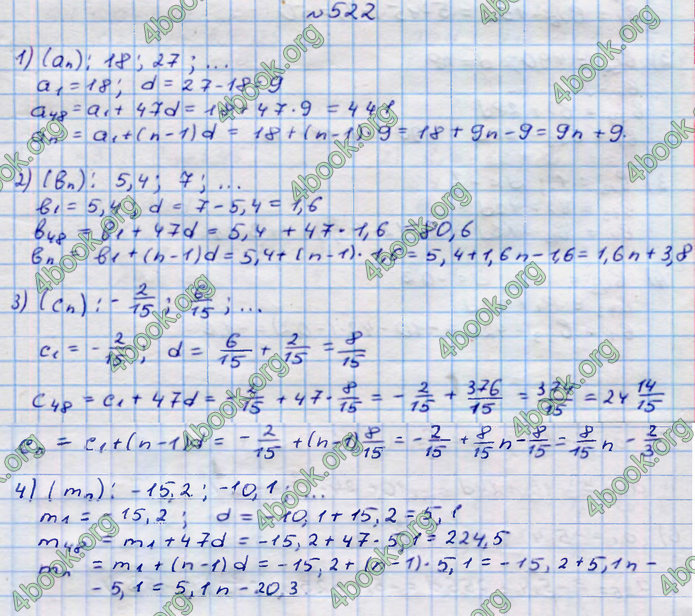 №522
1) (an): 18; 27; ...
a1 = 18; d = 27-18=9
a48 = a1 + 47d = 18 + 47·9 = 441
an = a1 + (n-1)d = 18 + (n-1)·9 = 18 + 9n - 9 = 9n + 9.
2) (вn): 5,4; 7; ...
в1 = 5,4; d = 7-5,4 = 1,6
в48 = в1 + 47d = 5,4 + 47·1,6 = 80,6
вn = в1 + (n-1)d = 5,4 + (n-1)·1,6 = 5,4 + 1,6n - 1,6 = 1,6n + 3,8
3) (cn): - 2/15; 6/15; ...
c1 = - 2/15; d = 6/15 + 2/15 = 8/15
c48 = c1 + 47d = - 2/15 + 47· 8/15 = - 2/15 + 376/15 = 374/15 = 24 14/15
cn = c1 + (n-1)d = - 2/15 + (n-1) 8/15 = - 2/15 + 8/15 n - 8/15 = 8/15 n - 2/3
4) (mn): -15,2; -10,1; ...
m1 = -15,2; d = -10,1 + 15,2 = 5,1
m48 = m1 + 47d = -15,2 + 47·5,1 = 224,5
mn = m1 + (n-1)d = -15,2 + (n-1)·5,1 = -15,2 + 5,1n -
- 5,1 = 5,1n - 20,3
4book.org